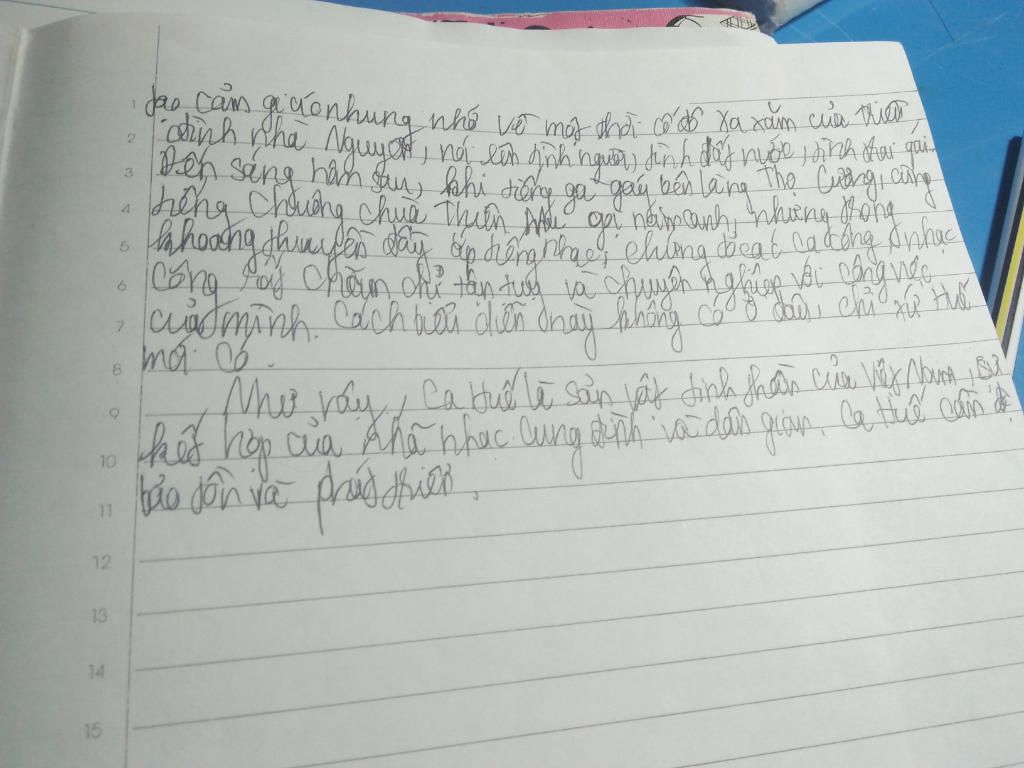 tạo cảm giác nhung nhớ về một thời cố đô xa xăm của triều
đình nhà Nguyễn, nói lên tình người, tình đất nước, tình trai gái.
Đến sáng hôm sau, khi tiếng gà gáy bên làng Thọ Cương, cùng
tiếng chuông chùa Thiên Mụ gọi năm canh, nhưng trong
khoang thuyền đầy ắp tiếng nhạc, chứng tỏ các ca công nhạc
công rất chăm chỉ tận tụy và chuyên nghiệp với công việc
của mình. Cách biểu diễn này không có ở đâu, chỉ xứ Huế
mới có.
Như vậy, ca Huế là sản vật tinh thần của Việt Nam, sự
kết hợp của nhã nhạc cung đình và dân gian. Ca Huế cần
bảo tồn và phát triển.
1
2
3
4
5
6
7
8
9
10
11
12
13
14
15